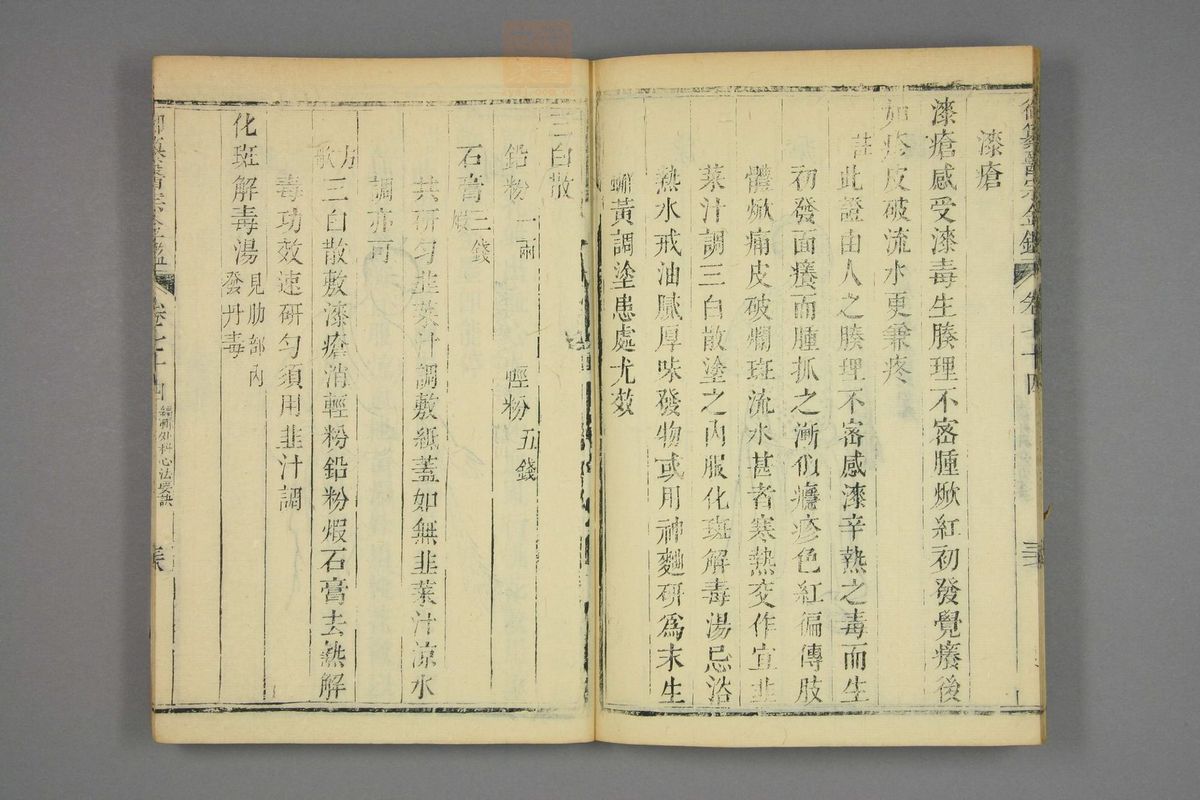 漆瘡
漆瘡感受漆毒生腠理不密腫焮紅初發覺癢後
如疹皮破流水更兼疼
註
此證由人之腠理不密感漆辛熱之毒而生
初發面癢而腫抓之漸似癮疹色紅徧傳肢
體焮痛皮破爛斑流水甚者寒熱交作宜韭
菜汁調三白散塗之內服化斑解毒湯忌浴
熱水戒油膩厚味發物或用神麯研爲末生
蠏黃調塗患處尤效
三白散
鉛粉一兩 輕粉五錢
石膏煅三錢
共研勻韭菜汁調敷紙蓋如無韭菜汁涼水
調亦可
方歌
三白散敷漆瘡消輕粉鉛粉煆石膏去熱解
毒功效速研勻須用韭汁調
化斑解毒湯見肋部內發丹毒
御纂醫宗金鑑 卷七十四 編輯外科心法要訣